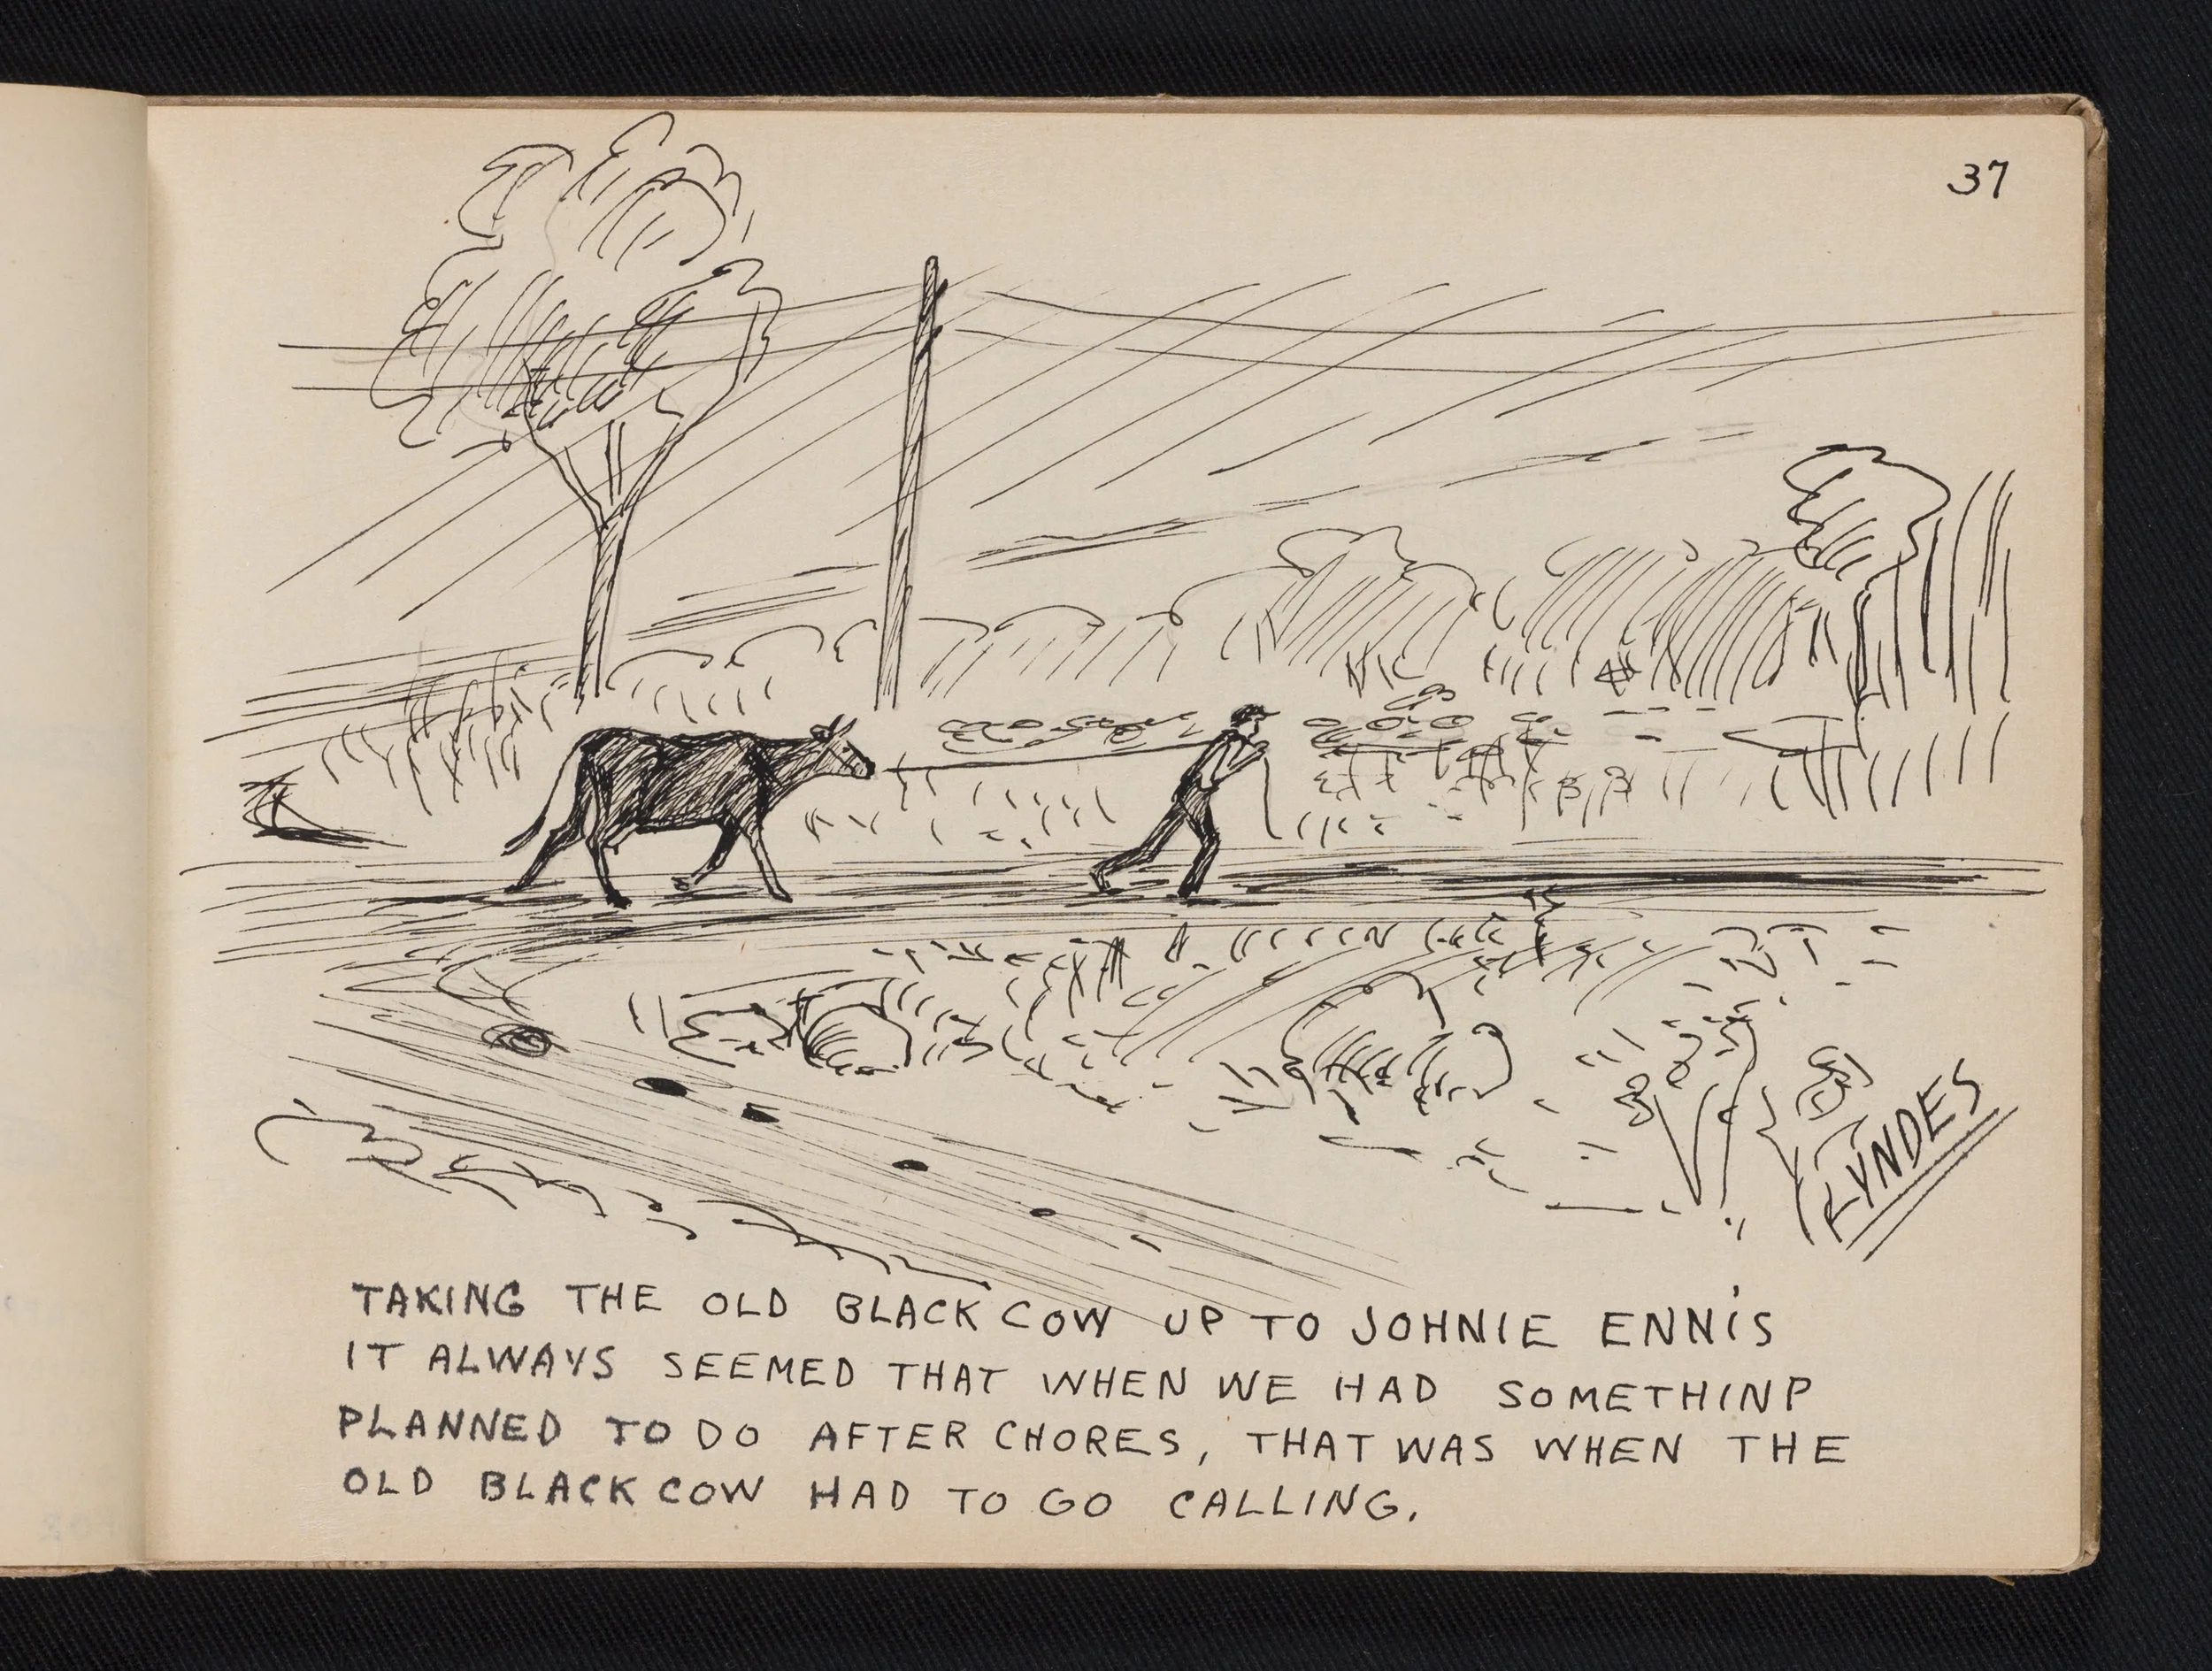 37
LYNDES
TAKING THE OLD BLACK COW UP TO JOHNIE ENNIS
IT ALWAYS SEEMED THAT WHEN WE HAD SOMETHINP
PLANNED TO DO AFTER CHORES, THAT WAS WHEN THE
OLD BLACK COW HAD TO GO CALLING.